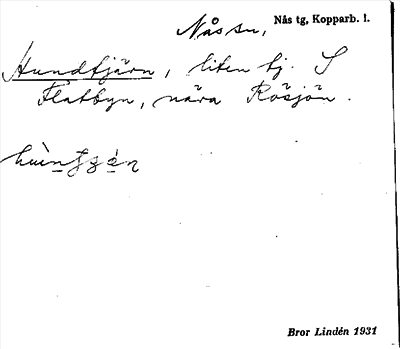 Nås sn, Nås tg, Kopparb. l.
Hundtjärn, liten tj. S
Flatbyn, nära Rösjön.
Bror Lindén 1931